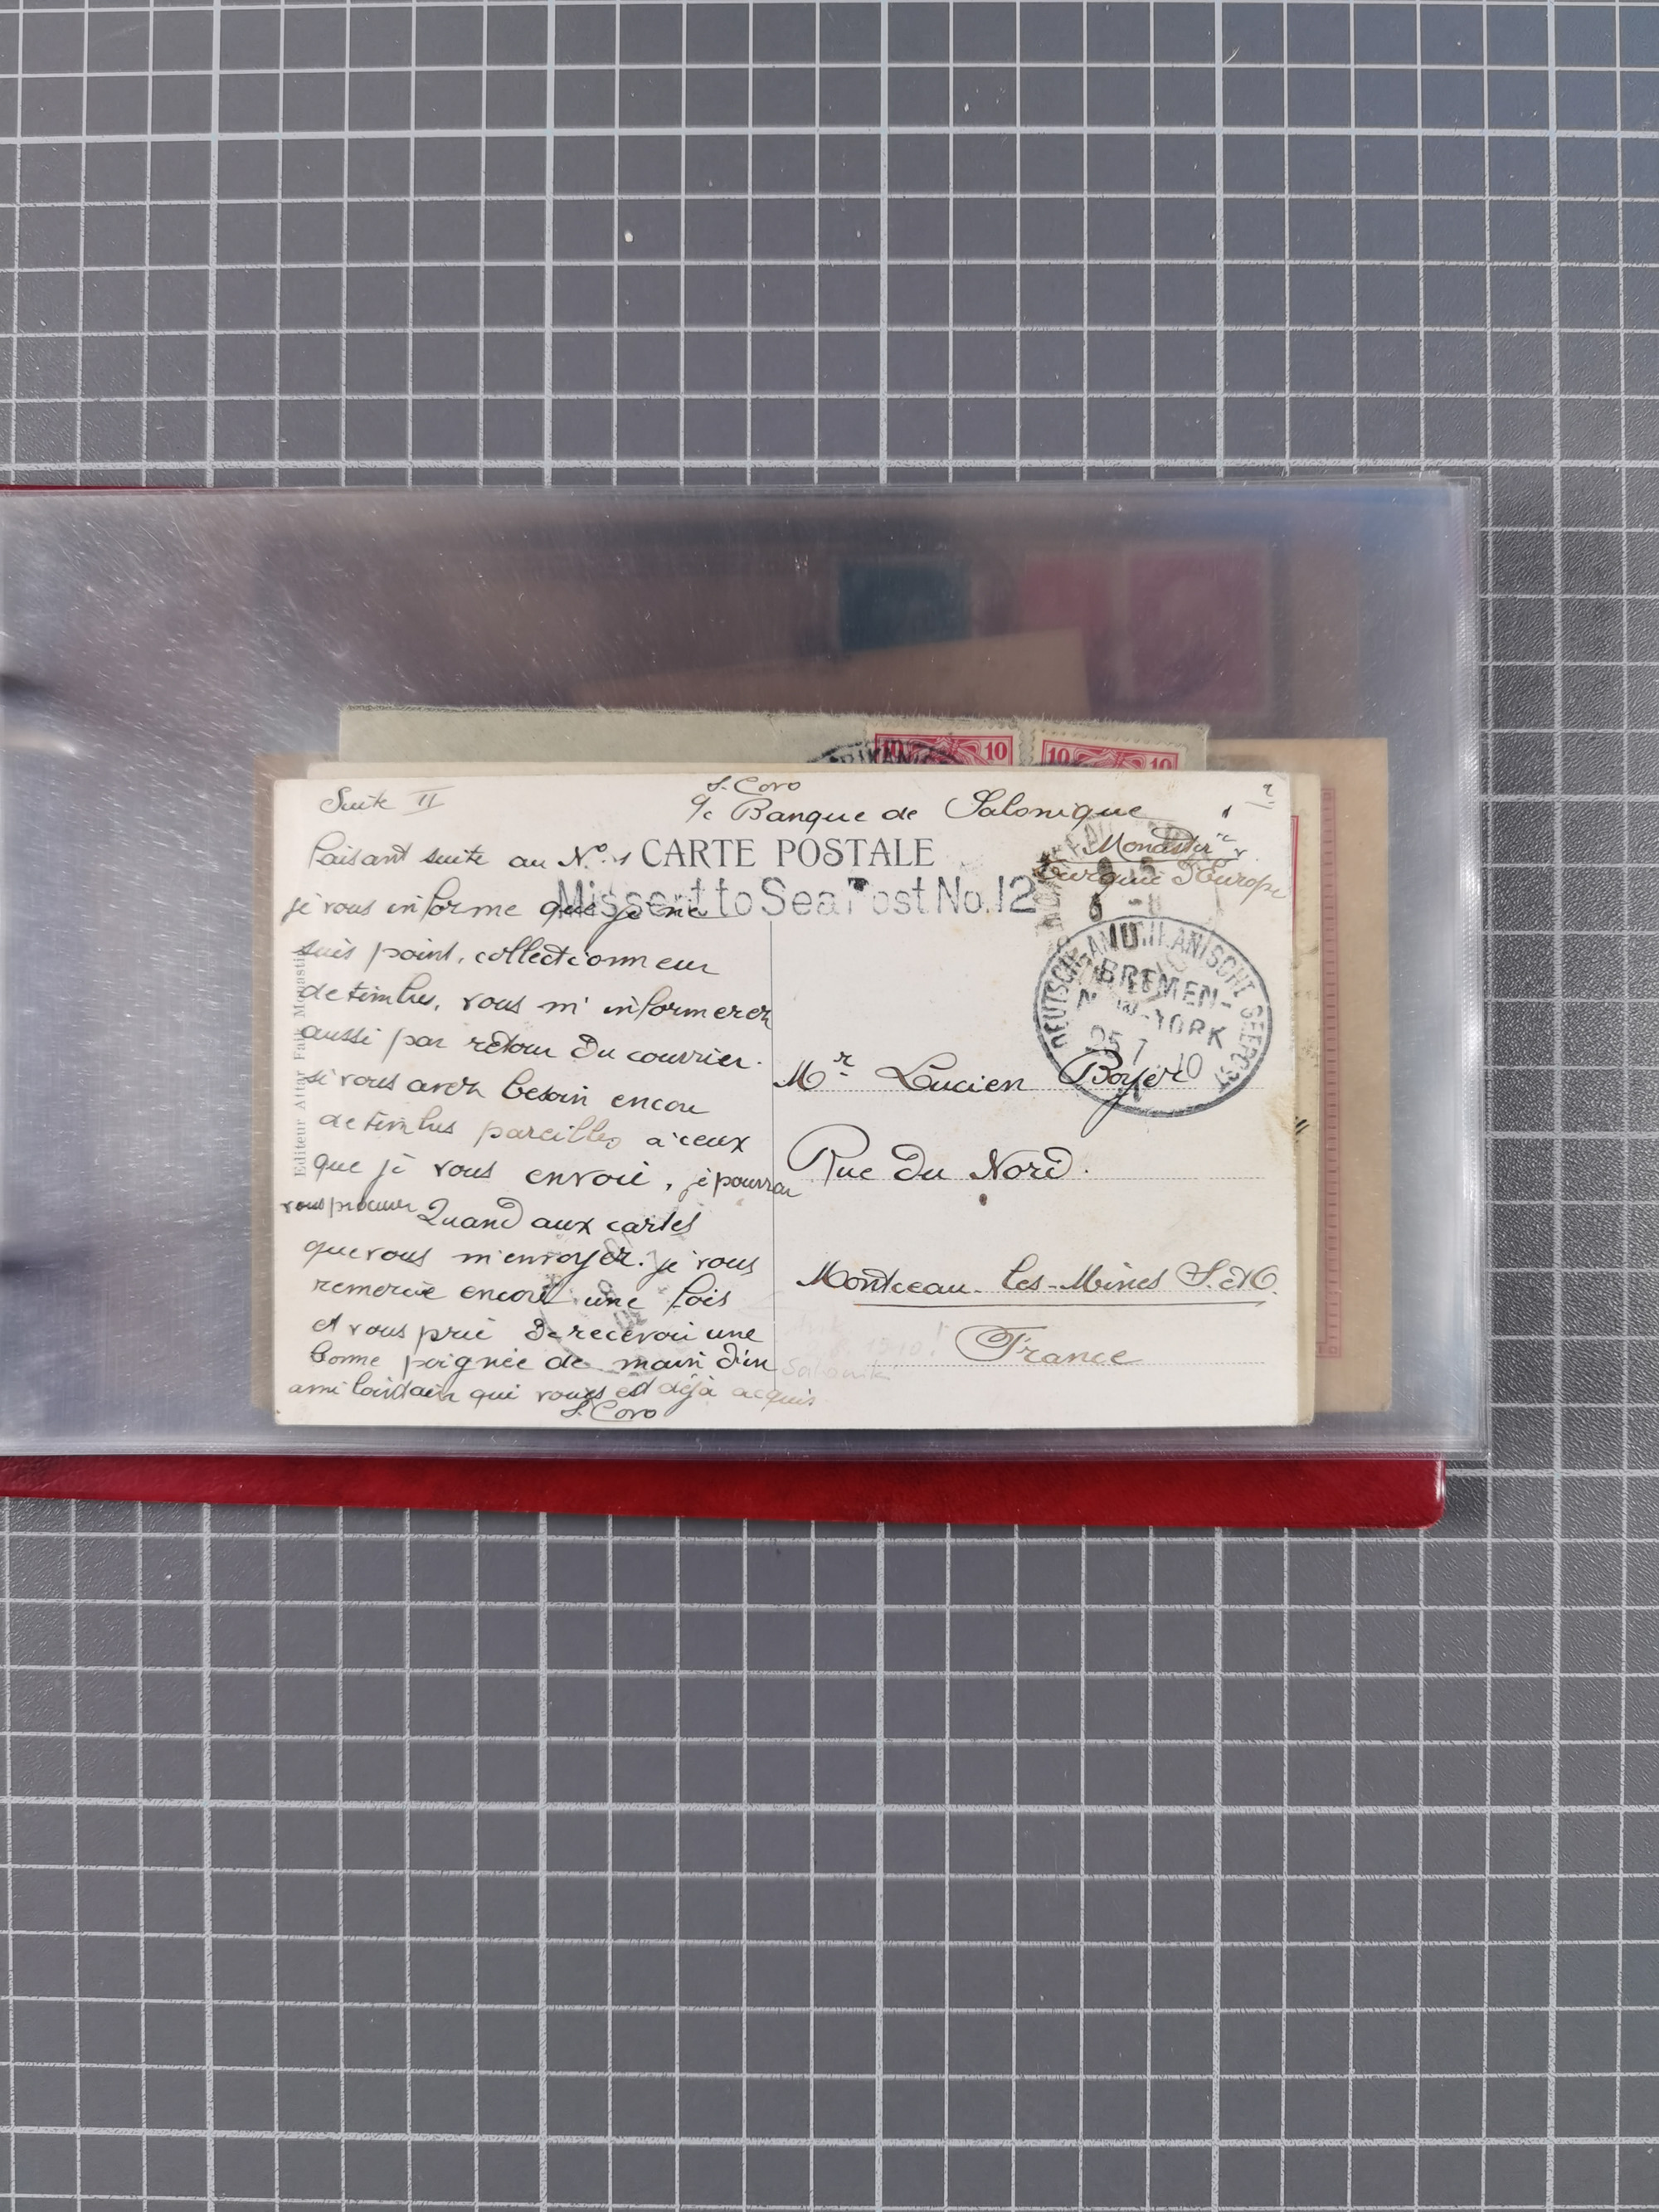 Suite II
S. Covo
c/o Banque de Salonique
Monastir
Turquie d'Europe
CARTE POSTALE
Missent to Sea Post No. 12
Faisant suite au N° 1
je vous informe que je ne
suis point, collectionneur
de timbres, vous m'informerez
aussi par retour du courrier.
si vous avez besoin encore
de timbres pareilles à ceux
que je vous envoie, je pourrai
vous procurer Quand aux cartes
que vous m'envoyez. je vous
remercie encore une fois
et vous prie de recevoir une
bonne poignée de main d'un
ami lointain qui vous est déjà acquis
S. Covo
Editeur Attar
DEUTSCH-AMERIKANISCHE SEEPOST
BREMEN-
NEW-YORK
25 7 10
Mr Lucien Boyer
Rue du Nord.
Montceau-les-Mines S. et L.
France
Saloniki
10 10
10 10